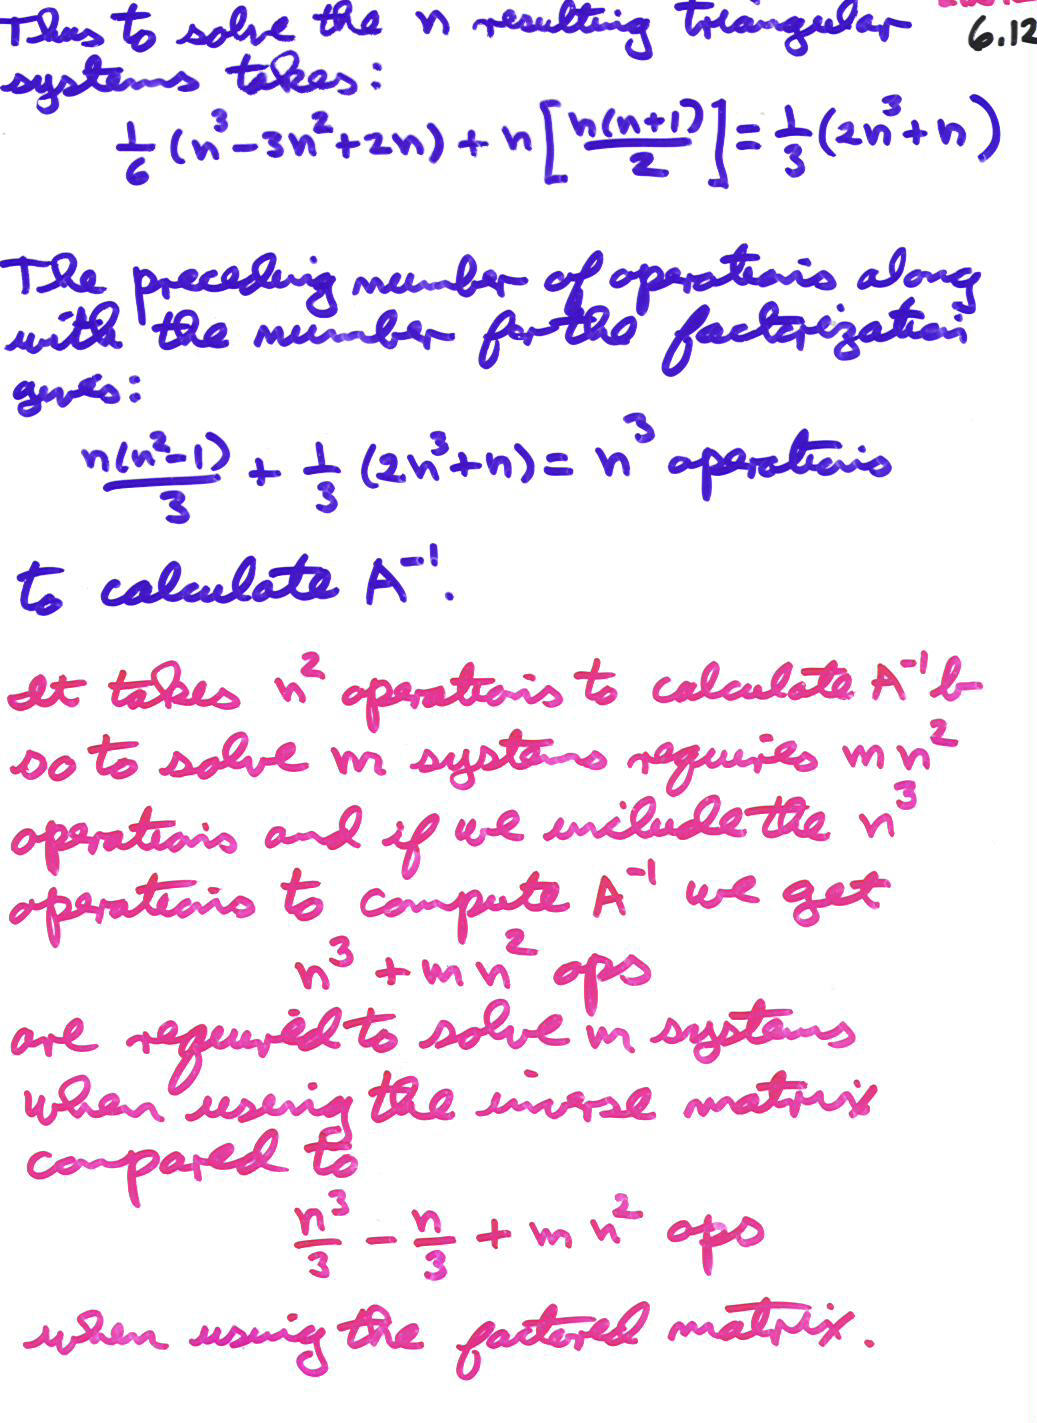 Thus to solve the n resulting triangular
6.12
systems takes:
1/6 (n³ - 3n² + 2n) + n [n(n+1)/2] = 1/3 (2n³ + n)
The preceding number of operations along
with the number for the factorization
gives:
n(n²-1)/3 + 1/3 (2n³+n) = n³ operations
to calculate A⁻¹.
It takes n² operations to calculate A⁻¹b
so to solve m systems requires mn²
operations and if we include the n³
operations to compute A⁻¹ we get
n³ + mn² ops
are required to solve m systems
when using the inverse matrix
compared to
n³/3 - n/3 + mn² ops
when using the factored matrix.